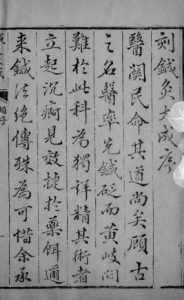 刻鍼灸大成序
醫關民命其道尚矣顧古
之名醫率先鍼砭而黃岐問
難於此科為獨詳精其術者
立起沉痾見效捷於藥餌邇
來鍼法絕傳殊為可惜余承